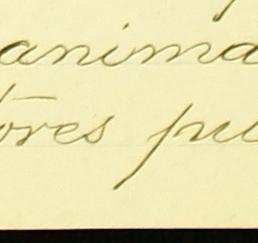 anima
ōres pu